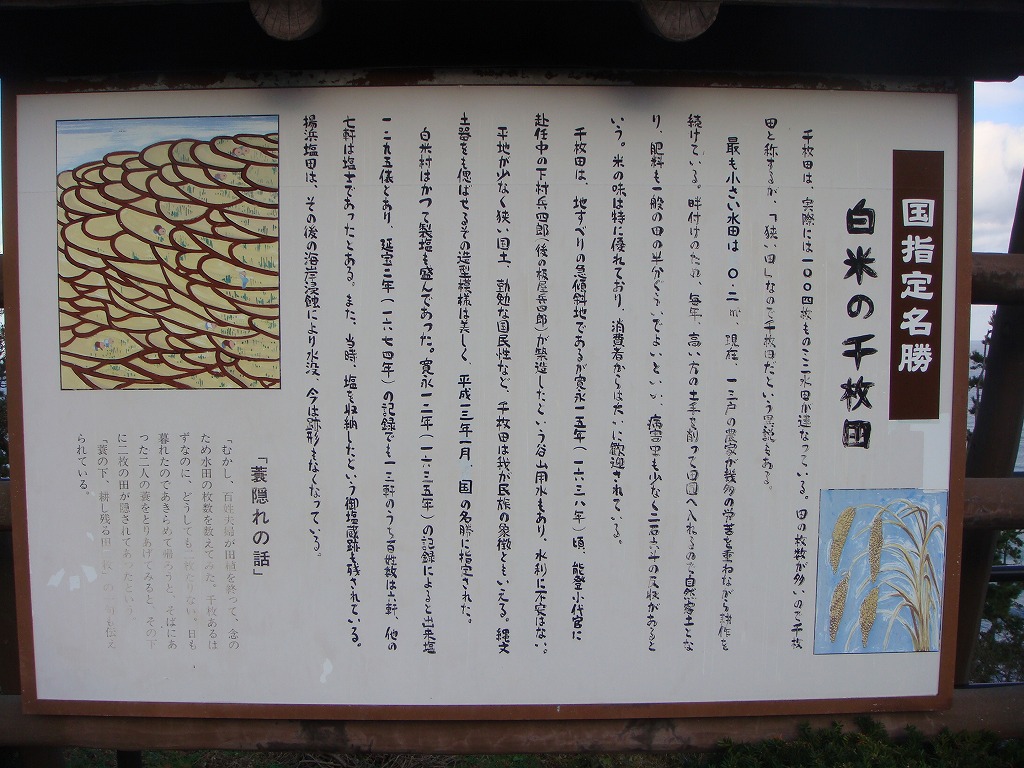 国指定名勝
白米の千枚田
千枚田は、実際には一〇〇四枚ものミニ水田が連なっている。田の枚数が多いので千枚
田と称するが、「狭い田」なので千枚田だという異説もある。
最も小さい水田は〇・二㎡、現在、一三戸の農家が幾多の労苦を重ねながら耕作を
続けている。畔付けのため、毎年、高い方の土手を削って田圃へ入れるので自然客土とな
り、肥料も一般の田の半分ぐらいでよいといい、病害虫も少なく二石六斗の反収があると
いう。米の味は特に優れており、消費者からはたいへん歓迎されている。
千枚田は、地すべりの急傾斜地であるが寛永一五年（一六三八年）頃、能登小代官に
赴任中の下村兵四郎（後の板屋兵四郎）が築造したという谷山用水もあり、水利に不安はない。
平地が少なく狭い国土、勤勉な国民性など、千枚田は我が民族の象徴ともいえる。縄文
土器をも偲ばせるその造型模様は美しく、平成一三年一月、国の名勝に指定された。
白米村はかつて製塩も盛んであった。寛永一二年（一六三五年）の記録によると出来塩
一二九五俵とあり、延宝二年（一六七四年）の記録でも一三軒のうち百姓数は六軒、他の
七軒は塩士であったとある。また、当時、塩を収納したという御塩蔵跡も残されている。
揚浜塩田は、その後の海岸浸蝕により水没、今は跡形もなくなっている。
「蓑隠れの話」
「むかし、百姓夫婦が田植を終って、念の
ため水田の枚数を数えてみた。千枚あるは
ずなのに、どうしても二枚たりない。日も
暮れたのであきらめて帰ろうと、そばにあ
った二人の蓑をとりあげてみると、その下
に二枚の田が隠されてあったという。
「蓑の下、耕し残る田二枚」の
も伝え
られている。